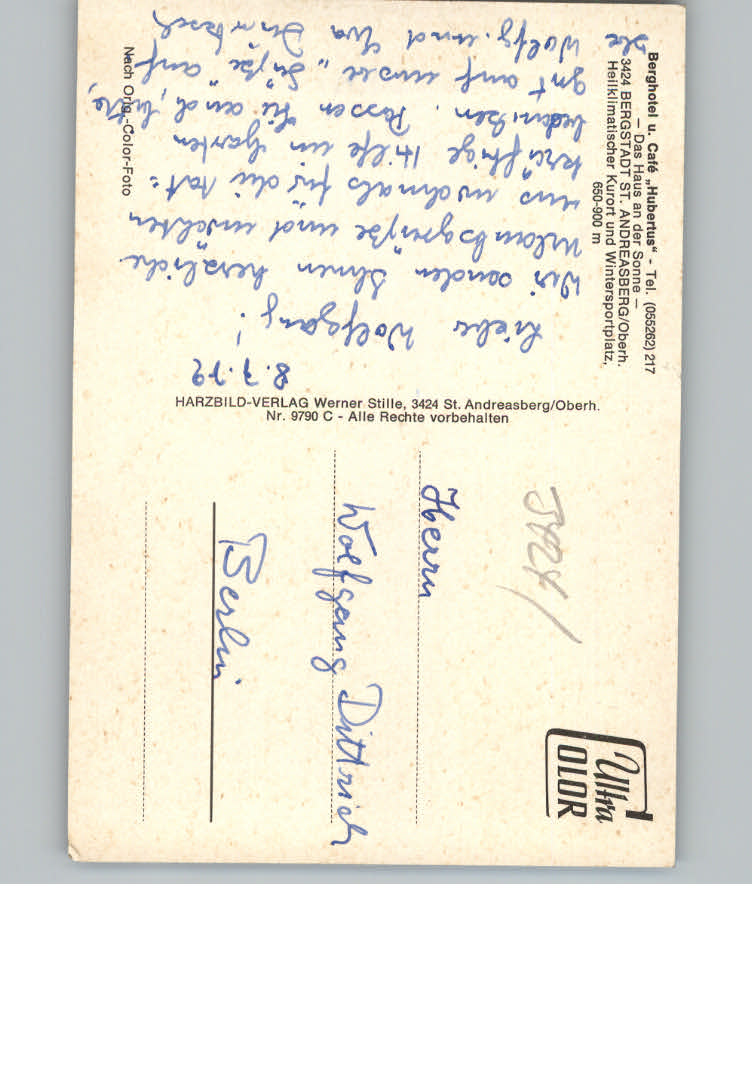 Berghotel u. Café „Hubertus“ - Tel. (055262) 217
— Das Haus an der Sonne —
3424 BERGSTADT ST. ANDREASBERG/Oberh.
Heilklimatischer Kurort und Wintersportplatz,
650-900 m
8.7.79
Lieber Wolfgang!
Wir senden Ihnen herzliche
Urlaubsgrüße und möchten
uns nochmals für die tat-
kräftige Hilfe im Garten
bedanken. Passen Sie auch, bitte,
gut auf unsere „Süße“ auf
Wolfg. und Eva
Nach Orig.-Color-Foto
HARZBILD-VERLAG Werner Stille, 3424 St. Andreasberg/Oberh.
Nr. 9790 C - Alle Rechte vorbehalten
Ultra
COLOR
Herrn
Wolfgang Dittrich
Berlin